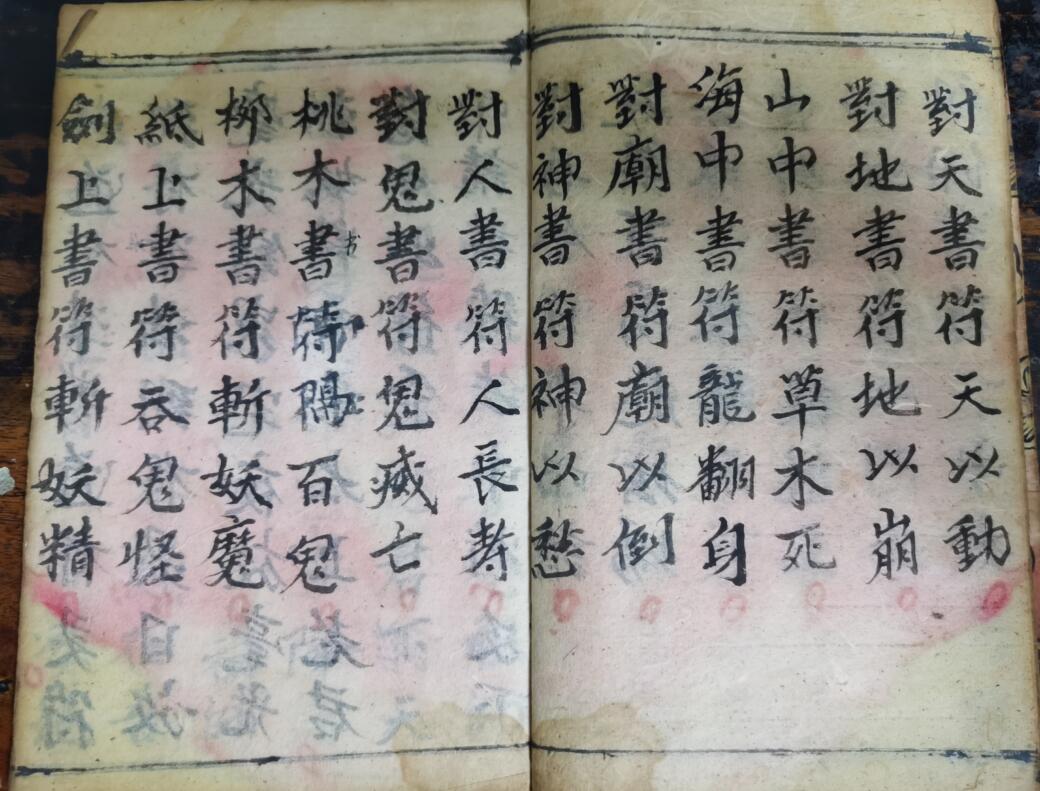 對天書符天以動
對地書符地以崩
山中書符草木死
海中書符龍翻身
對廟書符廟以倒
對神書符神以愁
對人書符人長寿
對鬼書符鬼滅亡
桃木書符 百鬼
柳木書符斬妖魔
紙上書符吞鬼怪
劍上書符斬妖精